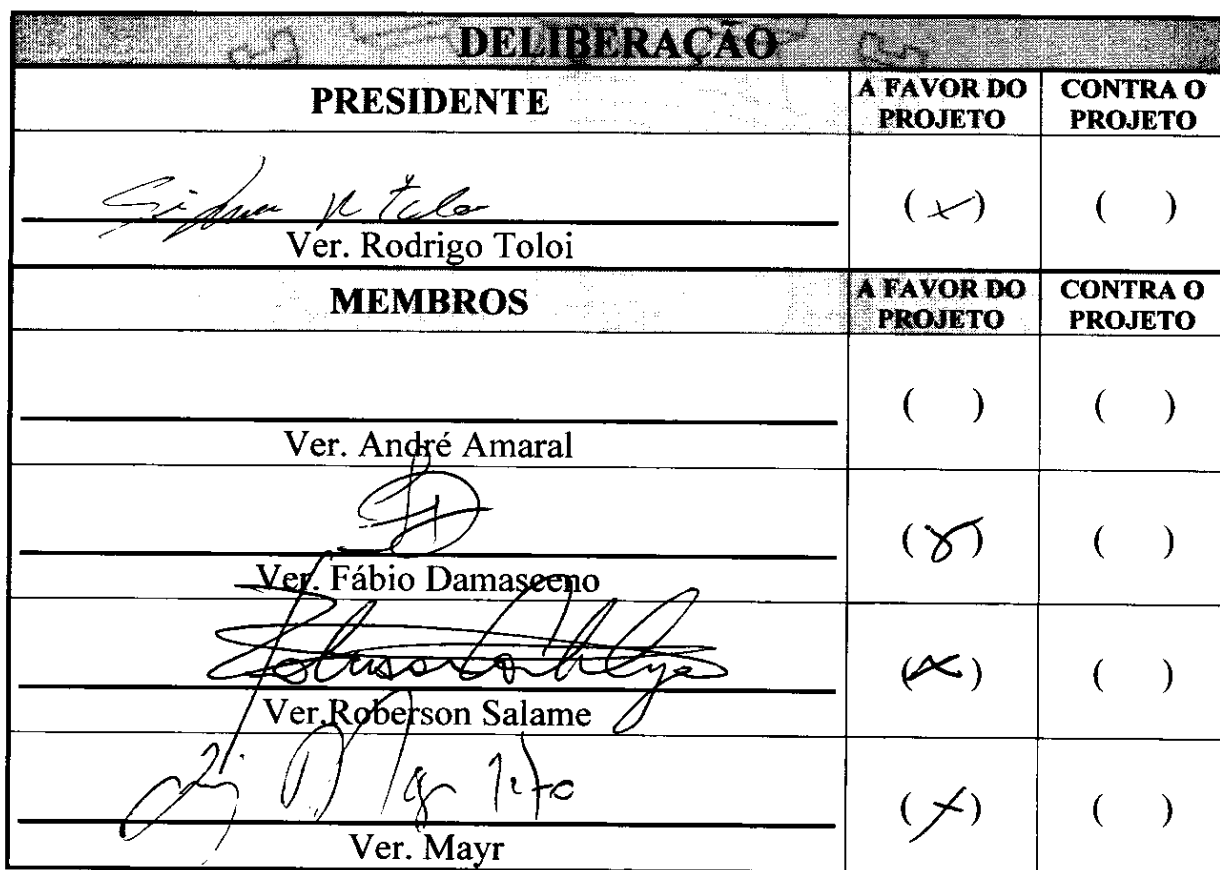 DELIBERAÇÃO
PRESIDENTE A FAVOR DO PROJETO CONTRA O PROJETO
(x) ( )
Ver. Rodrigo Toloi
MEMBROS A FAVOR DO PROJETO CONTRA O PROJETO
( ) ( )
Ver. André Amaral
(x) ( )
Ver. Fábio Damasceno
(x) ( )
Ver.Roberson Salame
(x) ( )
Ver. Mayr